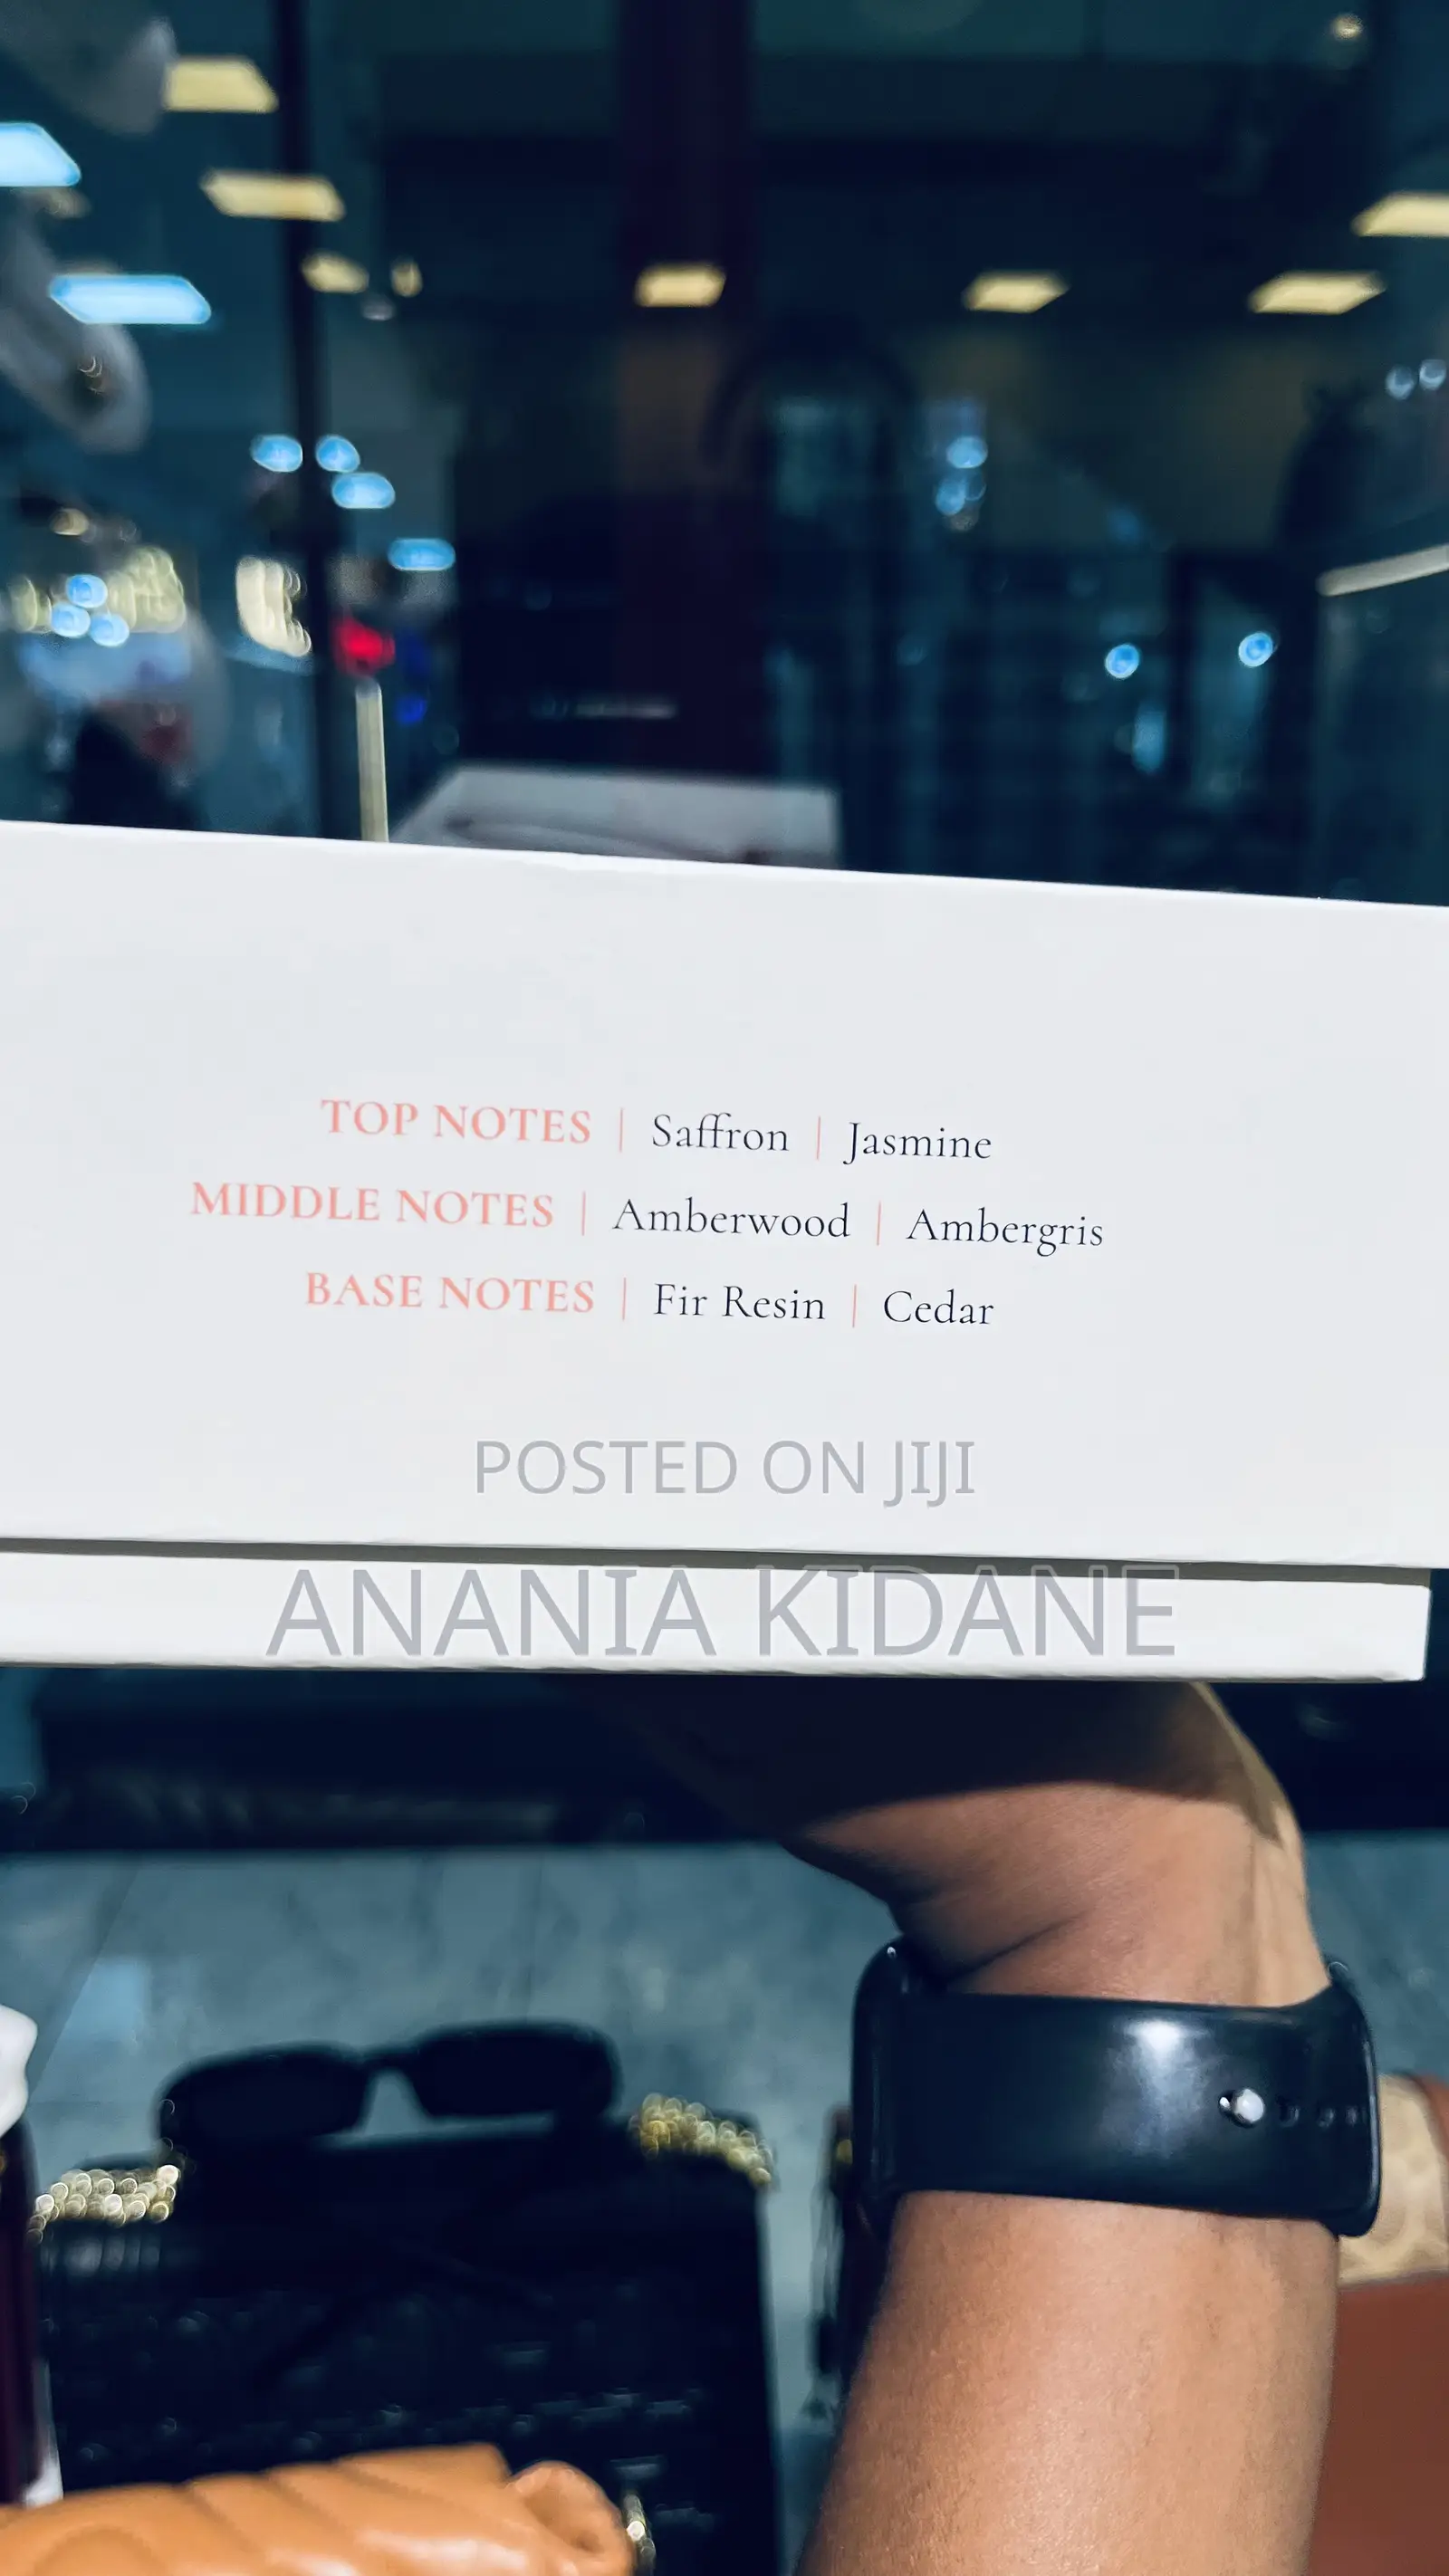 TOP NOTES | Saffron | Jasmine
MIDDLE NOTES | Amberwood | Ambergris
BASE NOTES | Fir Resin | Cedar
POSTED ON JIJI
ANANIA KIDANE